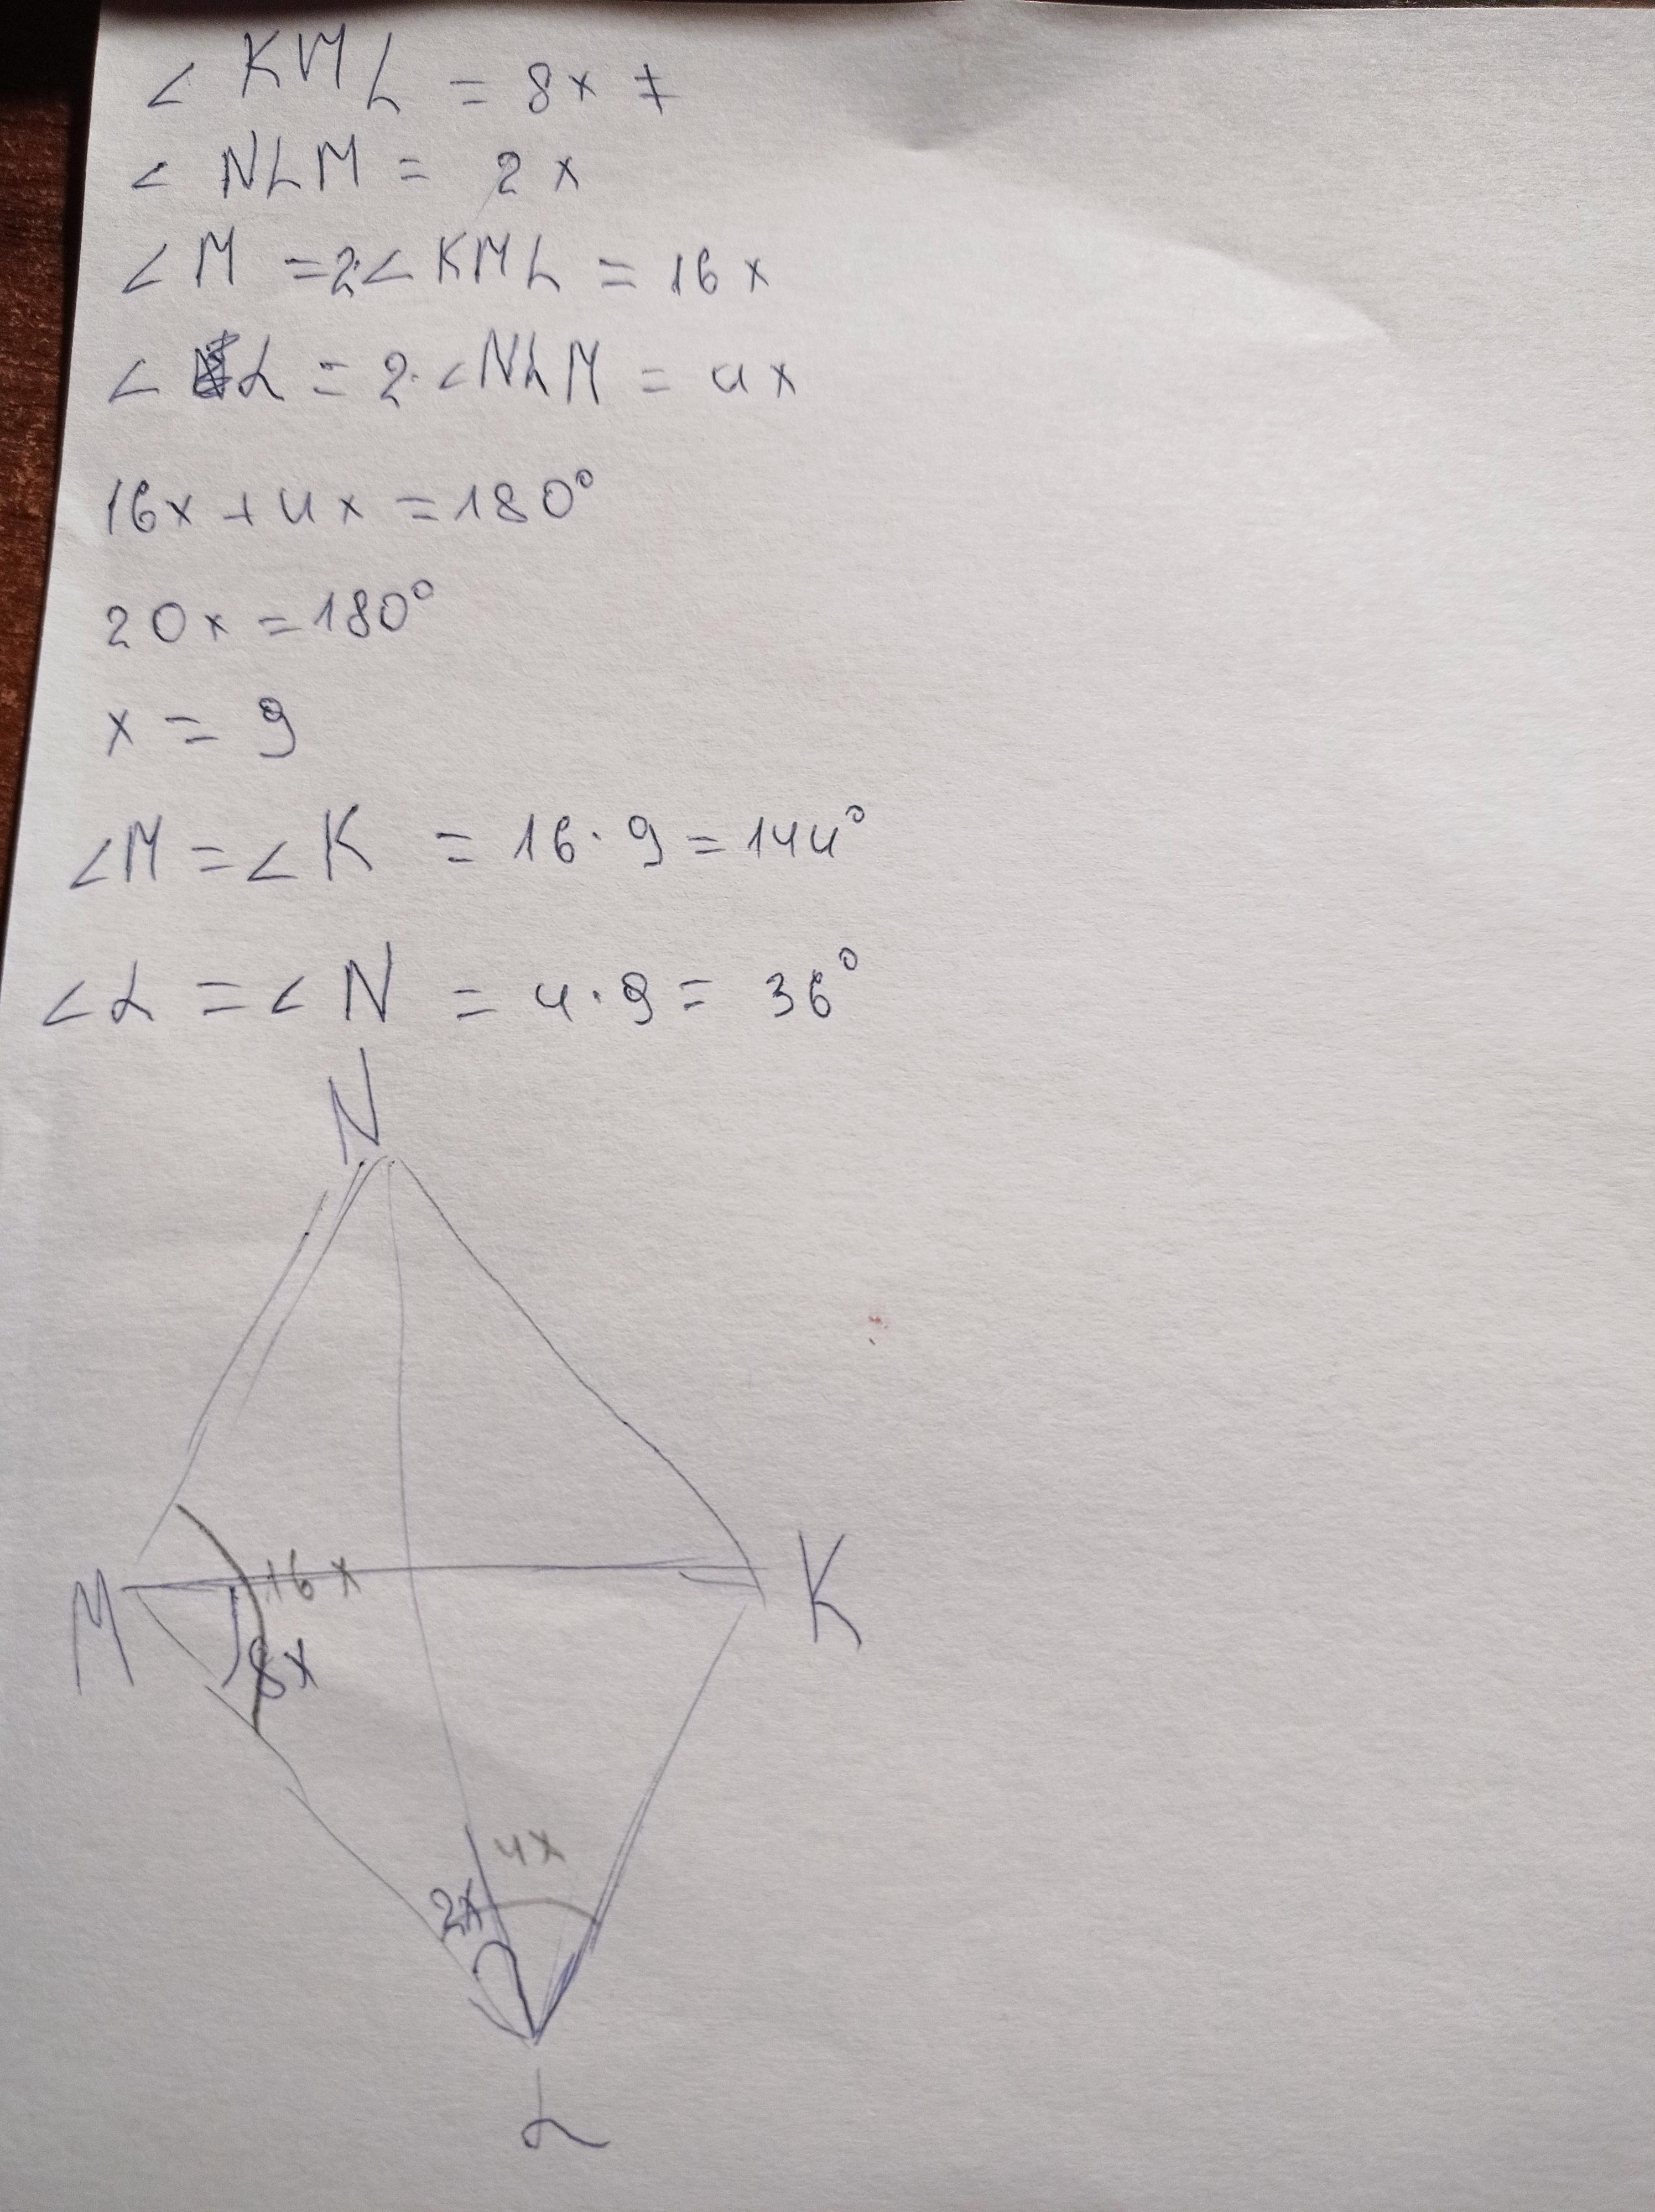 ∠ KML = 8x
∠ NLM = 2x
∠M = 2·∠KML = 16x
∠ L = 2·∠NLM = 4x
16x + 4x = 180°
20x = 180°
x = 9
∠M = ∠K = 16·9 = 144°
∠L = ∠N = 4·9 = 36°
N
M
16x
K
8x
4x
2x
L